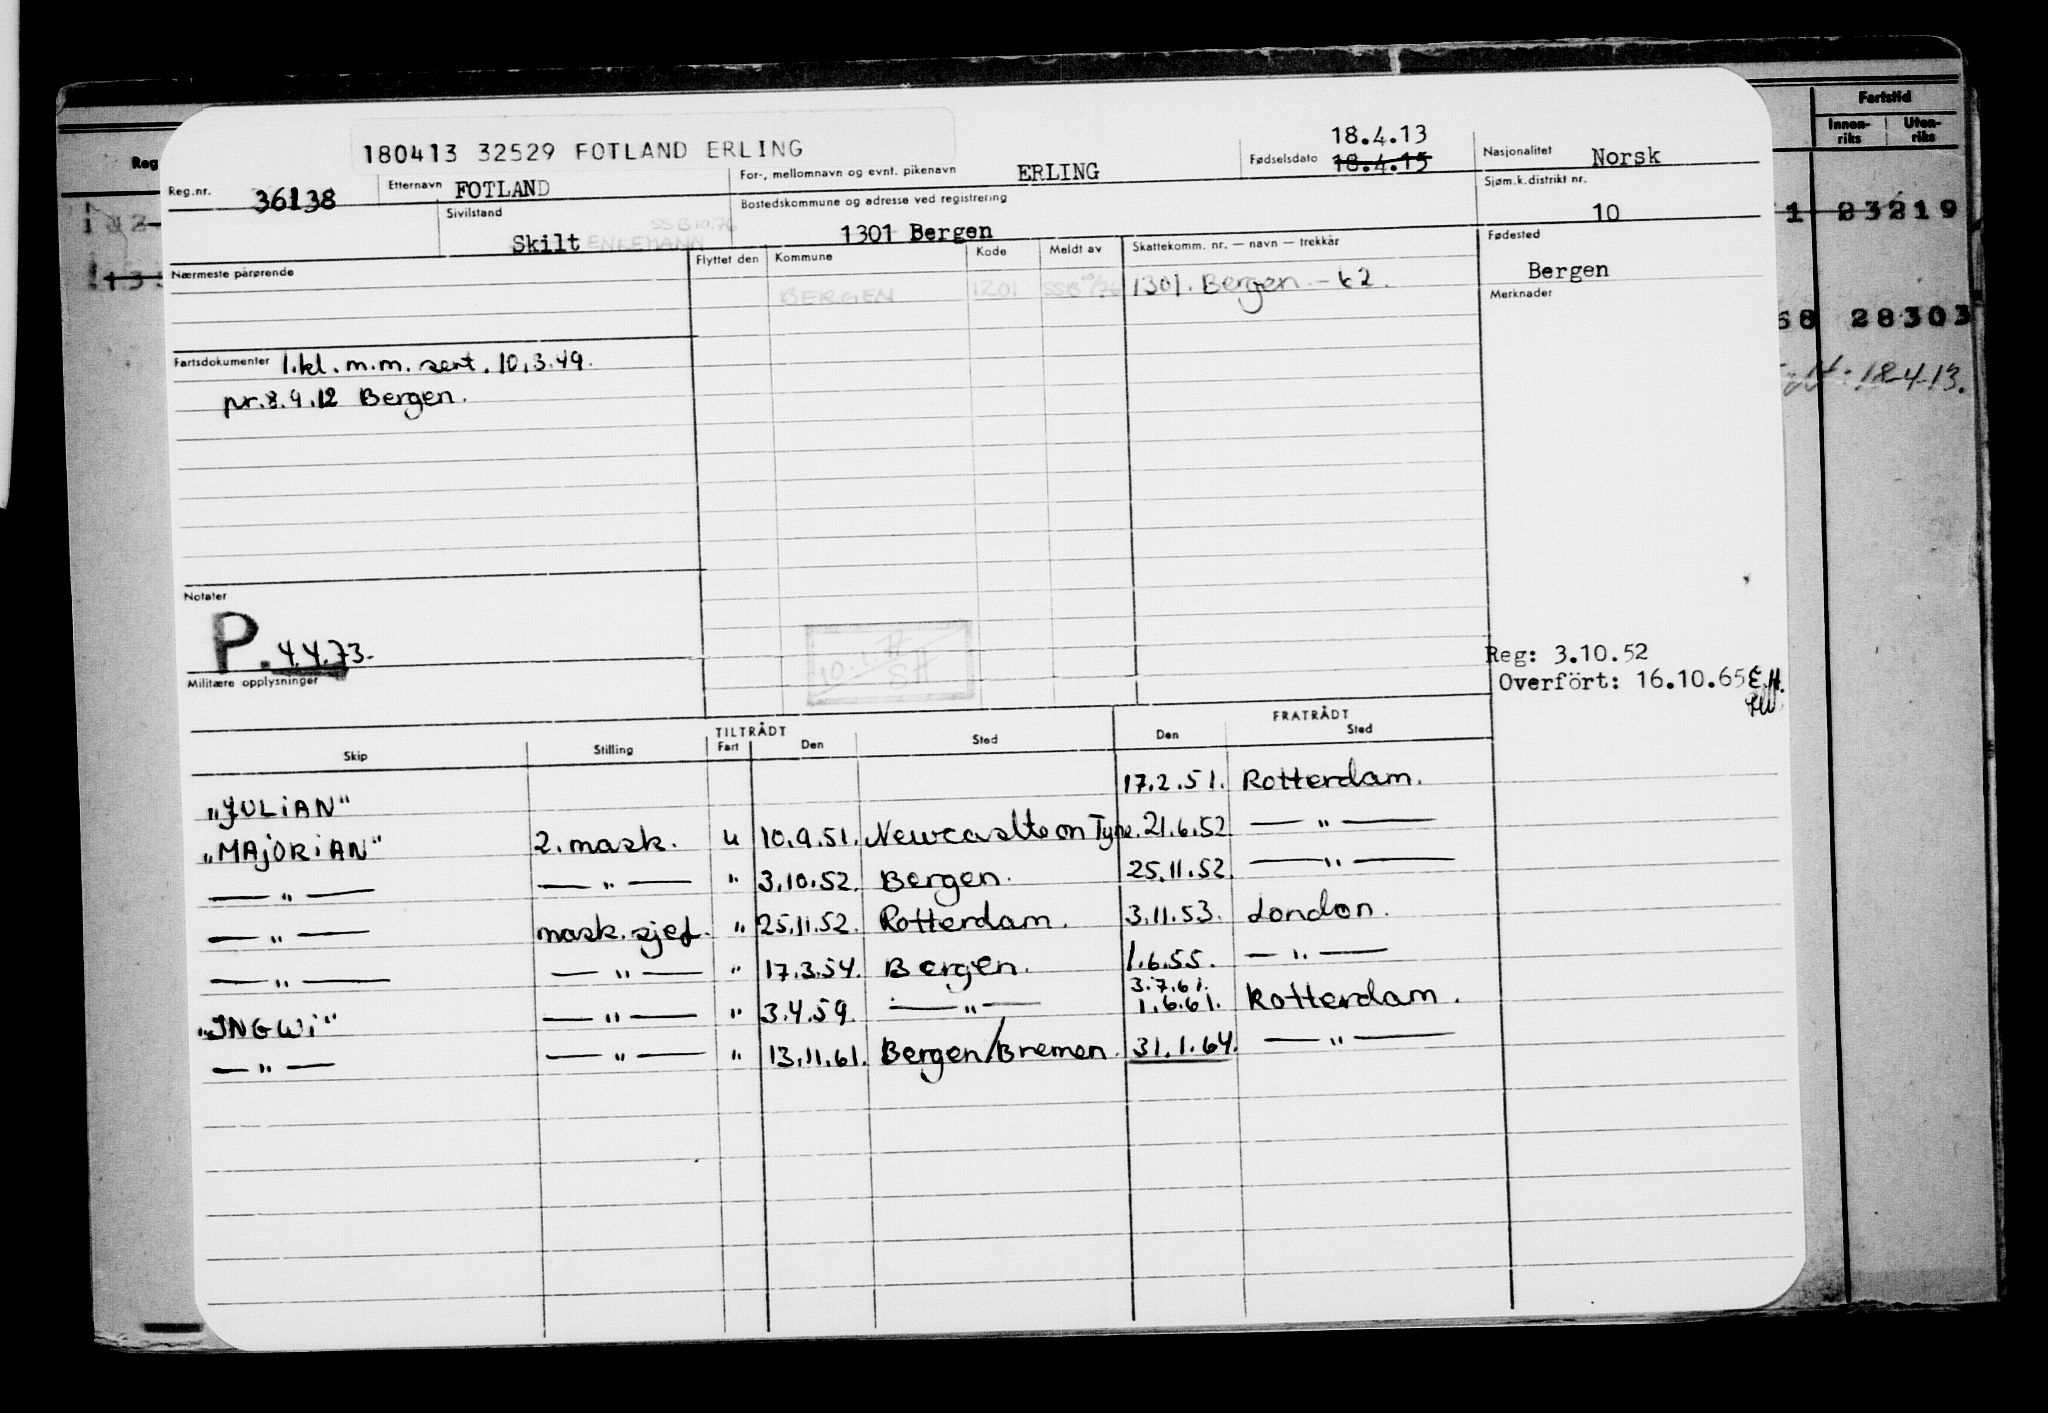 Fartstid
Innen-riks Uten-riks
Reg
180413 32529 FOTLAND ERLING
Reg.nr. 36138
Etternavn FOTLAND
For-, mellomnavn og evnt. pikenavn ERLING
Fødselsdato 18.4.13
18.4.15
Nasjonalitet Norsk
Sivilstand Skilt ENKEMANN SSB 10.76
Bostedskommune og adresse ved registrering
1301 Bergen
Sjøm.k.distrikt nr.
10
1 23219
Nærmeste pårørende
Flyttet den Kommune Kode Meldt av Skattekomm. nr. — navn — trekkår
BERGEN 1201 SSB 10/76 1301. Bergen - 62.
Fødested
Bergen
Merknader
68 28303
18-4-13.
Fartsdokumenter 1.kl. m.m. sert. 10.3.49.
pr. 8.9.12 Bergen.
Notater
P. 4.4.73.
Militære opplysninger
Reg: 3.10.52
Overfört: 16.10.65 E.H.
TILTRÅDT FRATRÅDT
Skip Stilling Fart Den Sted Den Sted
"JULIAN" 17.2.51. Rotterdam.
"MAJORIAN" 2. mask. u 10.9.51. Newcastle on Tyne. 21.6.52 — " —
— " — — " — " 3.10.52. Bergen. 25.11.52. — " —
— " — mask.sjef. " 25.11.52. Rotterdam. 3.11.53. London.
— " — — " — " 17.3.54. Bergen. 1.6.55. — " —
3.7.61.
"INGWI" — " — " 3.4.59. — " — 1.6.61. Rotterdam.
— " — — " — " 13.11.61. Bergen/Bremen. 31.1.64. — " —